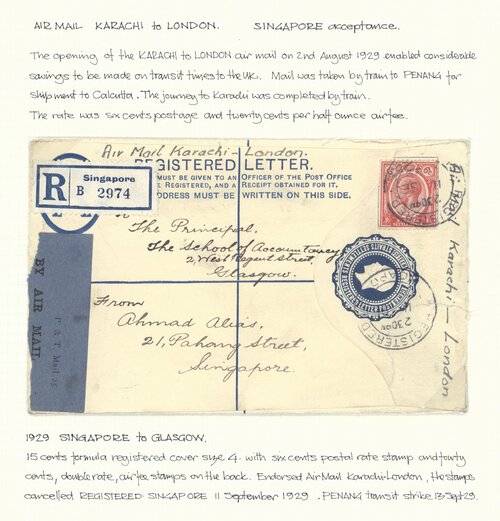 AIR MAIL KARACHI to LONDON. SINGAPORE acceptance.
The opening of the KARACHI to LONDON air mail on 2nd August 1929 enabled considerable
savings to be made on transit times to the U.K. Mail was taken by train to PENANG for
shipment to Calcutta. The journey to Karachi was completed by train.
The rate was six cents postage and twenty cents per half ounce air fee.
Air Mail Karachi - London.
REGISTERED LETTER.
MUST BE GIVEN TO AN OFFICER OF THE POST OFFICE
BE REGISTERED, AND A RECEIPT OBTAINED FOR IT.
ADDRESS MUST BE WRITTEN ON THIS SIDE.
R
Singapore
B 2974
The Principal,
The School of Accountancy
2, West Regent Street,
Glasgow.
From
Ahmad Alias,
21, Pahang Street,
Singapore.
BY AIR MAIL
P & T. Mail 25
Air Mail Karachi - London
REGISTERED
2 30 PM
REGISTERED
2 30 PM
1929 SINGAPORE to GLASGOW.
15 cents formula registered cover size 4. with six cents postal rate stamp and forty
cents, double rate, air fee stamps on the back. Endorsed Air Mail Karachi-London, the stamps
cancelled REGISTERED SINGAPORE 11 September 1929. PENANG transit strike 13 Sept 29.